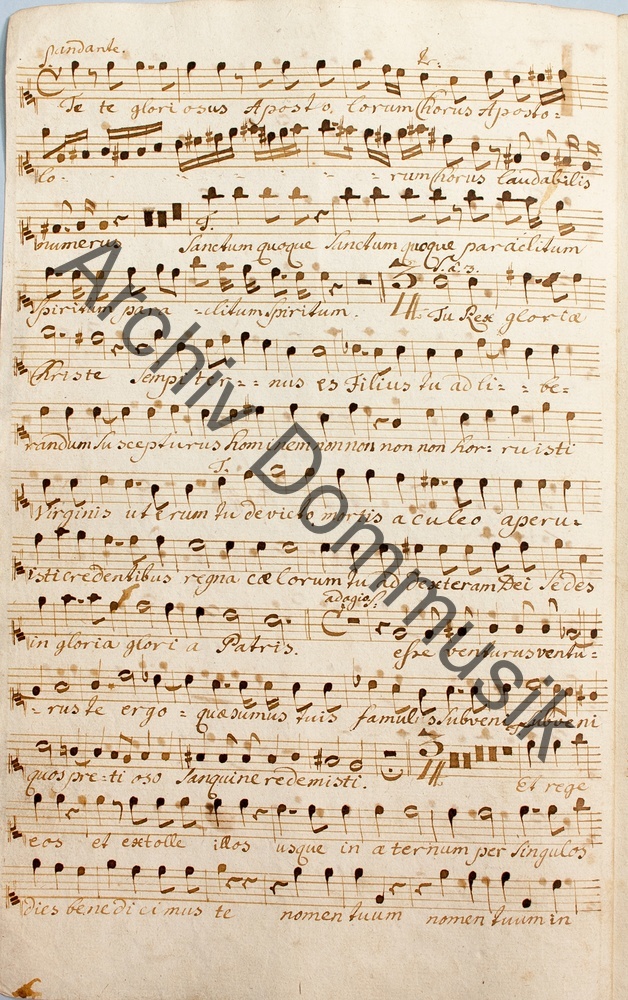 Andante.
tr:
Te te gloriosus Aposto, lorum Chorus Aposto=
lo- - - - - - rum Chorus laudabilis
numerus Sanctum quoque Sanctum quoque paraclitum
T.
Spiritum para - clitum Spiritum. Tu Rex gloriæ
Christe sempiter- - - nus es Filius tu ad li- - be-
randum Suscepturus hominem non non non non hor- ruisti
T.
Virginis uterum tu devicto mortis aculeo aperu-
isti credentibus regna cœlorum tu ad dexteram Dei Sedes
adagio
in gloria gloria Patris. esse venturus ventu=
- rus te ergo - quæsumus tuis famulis Subveni Subveni
quos pretioso Sanguine redemisti. Et rege
3/4
eos et extolle illos usque in æternum per Singulos
dies benedicimus te nomen tuum nomen tuum in
Archiv Dommusik